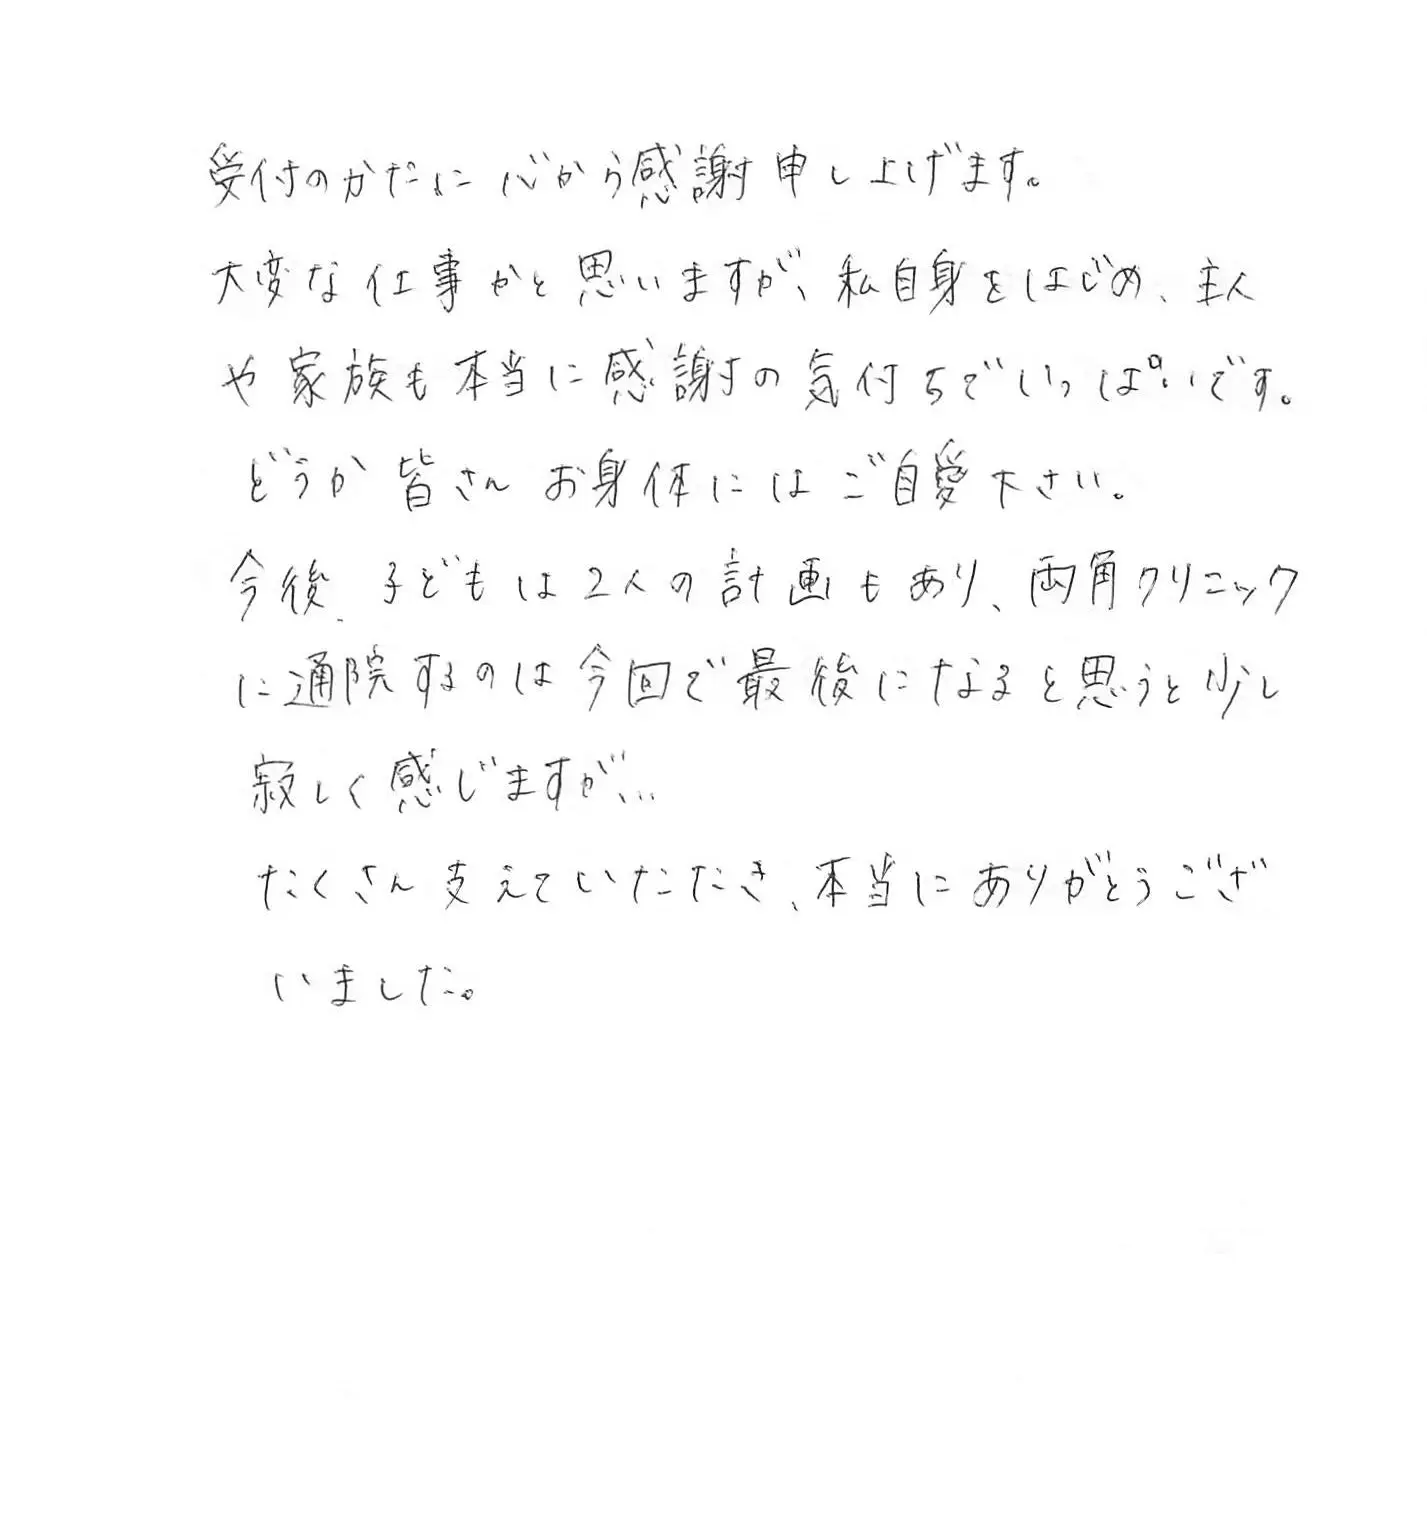 受付のかたに心から感謝申し上げます。
大変な仕事かと思いますが、私自身をはじめ、主人
や家族も本当に感謝の気付ちでいっぱいです。
どうか皆さんお身体にはご自愛下さい。
今後、子どもは2人の計画もあり、両角クリニック
に通院するのは今回で最後になると思うと少し
寂しく感じますが…
たくさん支えていただき、本当にありがとうござ
いました。